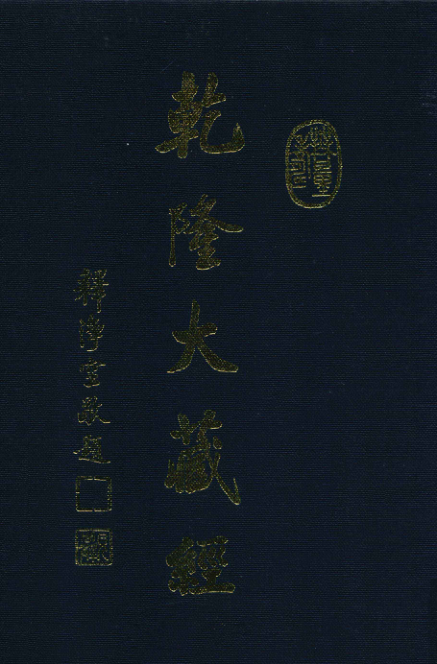 乾隆大藏經
釋淨空敬題